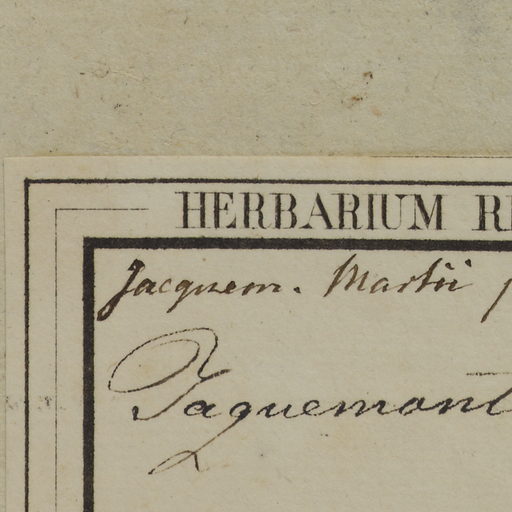 HERBARIUM RE
Jacquem. Martii
Jaquemont